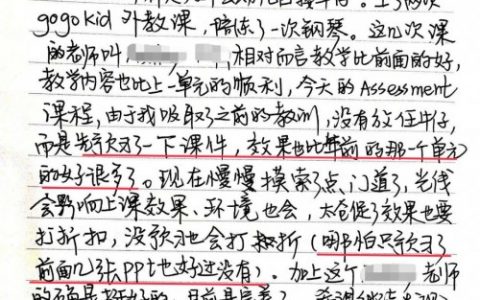 gogokid外教课，陪练了一次钢琴。这几次课
的老师叫 相对而言教学比前面的好，
教学内容也比上一单元的顺利，今天的Assessment
课程，由于我吸取了之前的教训，没有放任牛仔，
而是先预习了一下课件，效果也比年前的那个单元
的好很多了。现在慢慢摸索了点门道了，光线
会影响上课效果、环境也会，太仓促了效果也要
打折扣，没预习也会打折扣（哪怕只预习了
前面几张PPt也好过没有）。加上这个 老师
的确是挺好的，